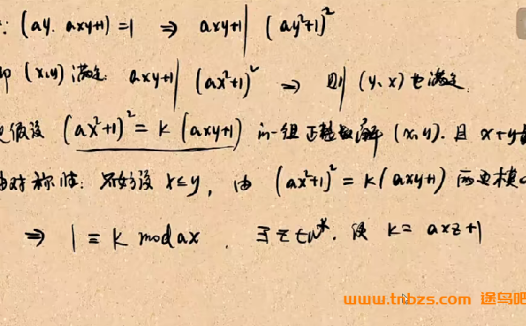 ∵ (ay, axy+1) = 1 ⇒ axy+1 | (ay²+1)²
即 (x,y) 满足 axy+1 | (ax²+1)² ⇒ 则 (y,x) 也满足.
假设 (ax²+1)² = k(axy+1) 的一组正整数解 (x,y). 且 x+y
由对称性: 不妨设 x≤y, 由 (ax²+1)² = k(axy+1) 两边模
⇒ 1 ≡ k mod ax . ∃ z∈N*, 使 k = axz+1
www.tnbzs.com 途鸟吧